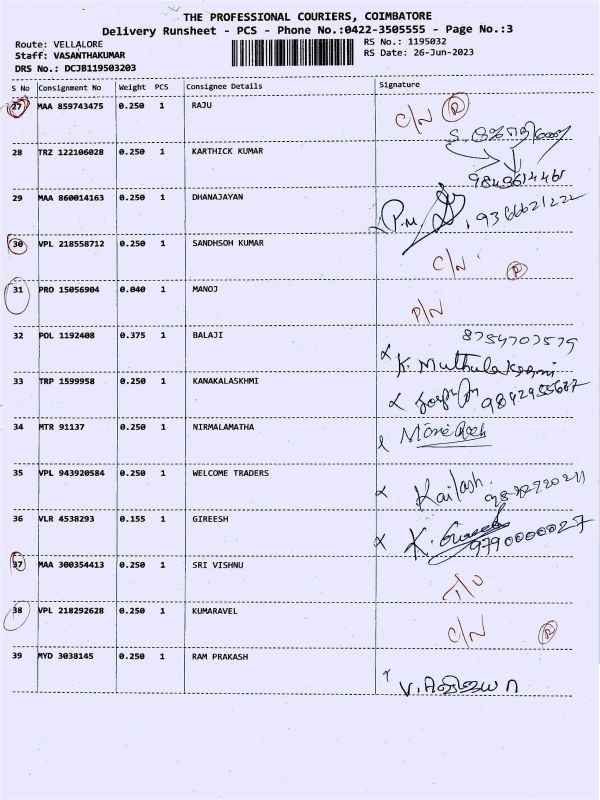 THE PROFESSIONAL COURIERS, COIMBATORE
Delivery Runsheet - PCS - Phone No.:0422-3505555 - Page No.:3
Route: VELLALORE RS No.: 1195032
Staff: VASANTHAKUMAR RS Date: 26-Jun-2023
DRS No.: DCJB119503203
S No Consignment No Weight PCS Consignee Details Signature
27 MAA 859743475 0.250 1 RAJU C/N R
28 TRZ 122106028 0.250 1 KARTHICK KUMAR
29 MAA 860014163 0.250 1 DHANAJAYAN P.M 9366621222
30 VPL 218558712 0.250 1 SANDHSOH KUMAR C/N R
31 PRO 15056904 0.040 1 MANOJ P/N
8754703579
32 POL 1192408 0.375 1 BALAJI K. Muthulakshmi
33 TRP 1599958 0.250 1 KANAKALASKHMI 9842955687
34 MTR 91137 0.250 1 NIRMALAMATHA
35 VPL 943920584 0.250 1 WELCOME TRADERS Kailash.
36 VLR 4538293 0.155 1 GIREESH K. 9790000027
37 MAA 300354413 0.250 1 SRI VISHNU
38 VPL 218292628 0.250 1 KUMARAVEL C/N R
39 MYD 3038145 0.250 1 RAM PRAKASH V.